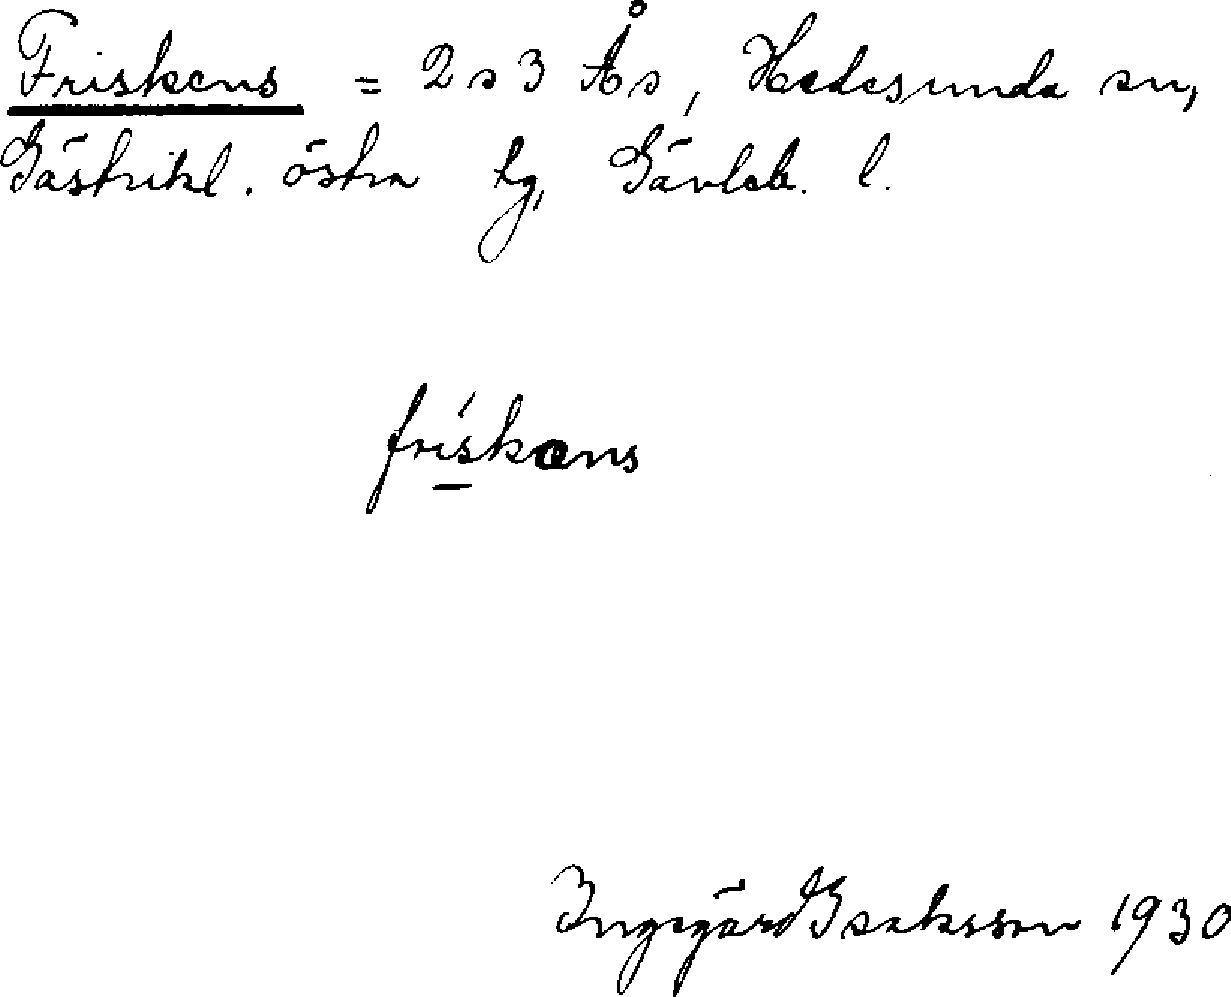 Friskens = 2 s 3 Ås, Hedesunda sn,
Gästrikl. östra tg, Gävleb. l.
friskens
Ingegärd Isaksson 1930